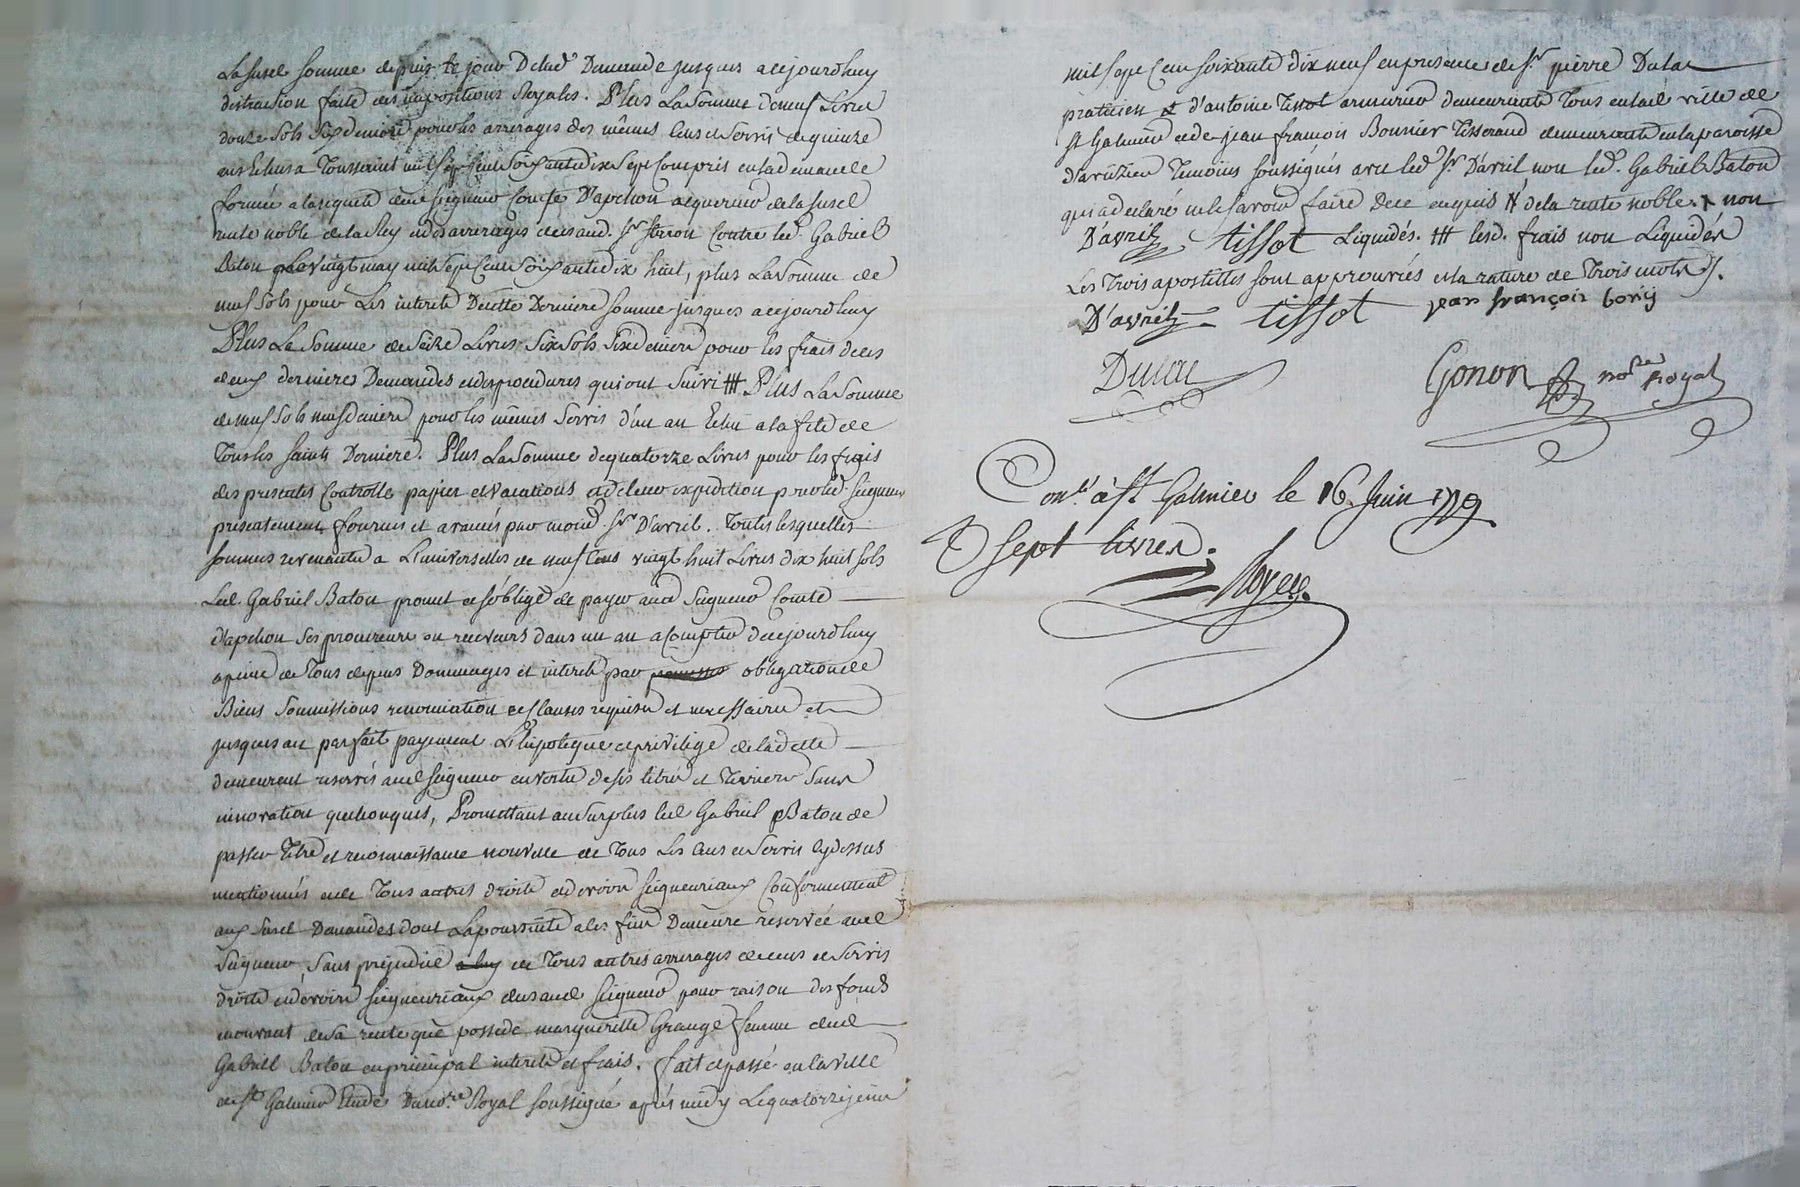 La susd. somme depuis le jour de lad. Demande jusques a cejourdhuy
distraction faite des impositions Royales. Plus La Somme de neuf Livres
douze sols six deniers pour les arrerages des mêmes Cens et Servis de quinze
ans Echus a Toussaint mil sept cent soixante dix sept compris en la demande
formée a la requete dud. Seigneur Comte D'apchon acquereur de la susd.
rente noble de la Rey et des arrerages dud. Sr. Contre led. Gabriel
Baton Le vingt may mil sept Cent Soixante dix huit, plus La Somme de
neuf sols pour Les interets De cette Derniere somme jusques a cejourdhuy
Plus La Somme de Seize Livres Six sols Six deniers pour les frais de ces
deux dernieres Demandes et des procedures qui ont suivi ♯ Plus La Somme
de neuf sols neuf deniers pour les mêmes Servis d'un an Echu a la fete de
Tous les saints Derniere. Plus La Somme de quatorze Livres pour les frais
des presentes Controlle papier et vacations et de leur expedition pour led. Seigneur
presentement fournis et avancés par moid. Sr. D'avril. Toutes lesquelles
sommes revenantes a L'universelle de neuf Cens vingt huit Livres dix huit sols
Led. Gabriel Baton promet et s'oblige de payer aud. Seigneur Comte
d'apchon ses procureurs ou receveurs dans un an a Compter de cejourdhuy
a peine de Tous depens Dommages et interets par obligation de
Biens Soumissions renonciation et Clauses requises et necessaires et
jusques au parfait payement L'hipoteque et privilege de la dette
demeurent reservés aud. Seigneur en vertu de ses titres et Terriers Sans
innovation quelconques, Promettant au Surplus led. Gabriel Baton de
passer Titre et reconnaissance nouvelle de Tous Les Cens et Servis cydessus
mentionnés et de Tous autres droits et devoirs Seigneuriaux Conformement
aux Susd. Demandes dont La poursuite a les fins Demeure reservée aud.
Seigneur, Sans prejudice a luy de Tous autres arrerages de cens et Servis
droits et devoirs Seigneuriaux dus aud. Seigneur pour raison des fonds
mouvant de sa rente que possede margueritte Grange femme dud.
Gabriel Baton en principal interets et frais. fait et passé en la ville
de St. Galmier Etude Du no.re Royal soussigné après midy Le quatorze juin
mil sept Cent soixante dix neuf en presence de Sr. pierre Dulac
praticien et d'antoine Tissot armurier demeurants Tous en lad. ville de
St Galmier et de jean françois Bonnier Tisserand demeurant en la paroisse
d'aveizieu Temoins soussignés avec led. Sr. D'avril non led. Gabriel Baton
qui a declaré ne le savoir faire De ce enquis # de la rente noble. x non
D'avril tissot Liquidés. ♯ lesd. frais non Liquidés
Les Trois apostilles sont approuvées et la rature de Trois mots.
D'avril tissot jean françois bony
Dulac Gonon no.re Royal
Con.lé a St Galmier le 16 Juin 1779
R sept livres.
Royer.